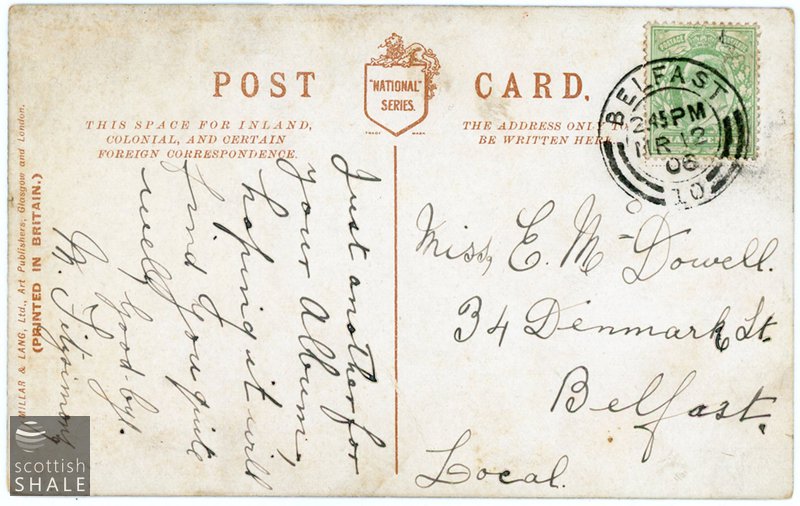 POST CARD.
"NATIONAL"
SERIES.
TRADE MARK
THIS SPACE FOR INLAND,
COLONIAL, AND CERTAIN
FOREIGN CORRESPONDENCE.
THE ADDRESS ONLY TO
BE WRITTEN HERE
BELFAST
2.45 PM
MR 12
06
10
Just another for
your Album,
hoping it will
find you quite
well
Good-by.
M. Fitzsimons
Miss, E. McDowell.
34 Denmark St.
Belfast.
Local.
MILLAR & LANG, Ltd., Art Publishers, Glasgow and London.
(PRINTED IN BRITAIN.)
scottish
SHALE